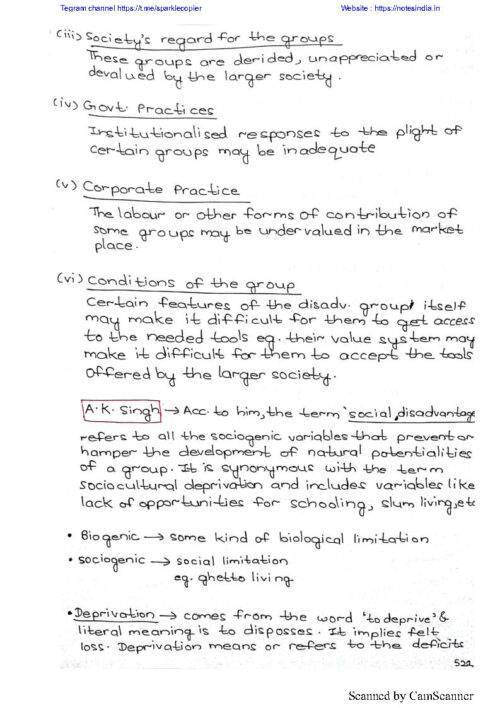 Tegram channel https://t.me/sparklecopier Website : https://notesindia.in
(iii) Society's regard for the groups
These groups are derided, unappreciated or
devalued by the larger society.
(iv) Govt. Practices
Institutionalised responses to the plight of
certain groups may be inadequate
(v) Corporate Practice
The labour or other forms of contribution of
some groups may be undervalued in the market
place.
(vi) Conditions of the group
Certain features of the disadv. group itself
may make it difficult for them to get access
to the needed tools eg. their value system may
make it difficult for them to accept the tools
offered by the larger society.
A.K. Singh → Acc. to him, the term 'social disadvantage
refers to all the sociogenic variables that prevent or
hamper the development of natural potentialities
of a group. It is synonymous with the term
sociocultural deprivation and includes variables like
lack of opportunities for schooling, slum living, etc
• Biogenic → some kind of biological limitation
• sociogenic → social limitation
eg. ghetto living
• Deprivation → comes from the word 'to deprive' &
literal meaning is to disposses. It implies felt
loss. Deprivation means or refers to the deficits
522
Scanned by CamScanner